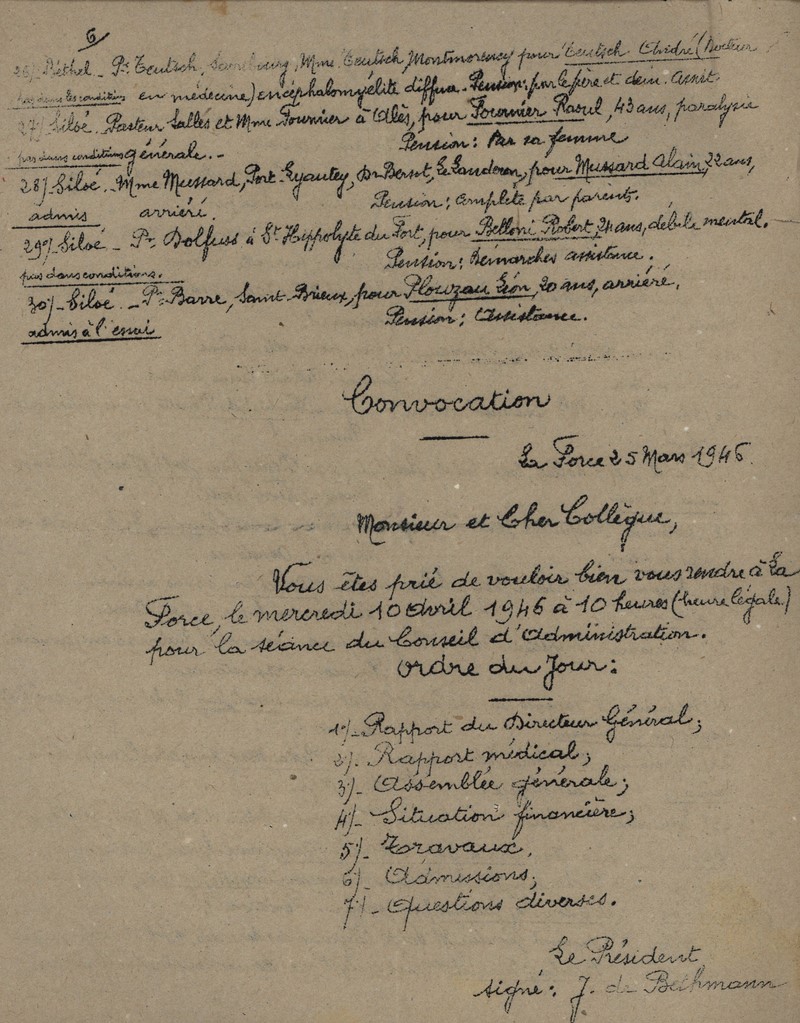 6/
26/ Béthel - Pr. Teutsch, Sarrebourg, Mme Teutsch, Montmorency pour Teutsch André (Docteur
pas dans les conditions en médecine) encéphalomyélite diffuse. Pension: par le père et dem. assist.
27/ Siloé. Pasteur Salles et Mme Fournier à Alès, pour Fournier Raoul, 43 ans, paralysie
pas dans conditions générale. - Pension: Par sa femme
28/ Siloé. Mme Mussard, Port-Lyautey, Dr Bersot, Le Landeron, pour Mussard Alain, 22 ans,
admis arriéré. Pension: complète par parents.
29/ Siloé - Pr. Dolfuss à St Hippolyte du Fort, pour Belloni Robert, 24 ans, débile mental.
pas dans conditions. Pension: Démarches assistance.
30/ Siloé. - Pr. Barre, Saint-Brieux, pour Plouzau Léon, 20 ans, arriéré.
admis à l'essai Pension: Assistance.
Convocation
La Force 25 Mars 1946.
Monsieur et Cher Collègue,
Vous êtes prié de vouloir bien vous rendre à La
Force, le mercredi 10 Avril 1946 à 10 heures (heure légale)
pour la séance du Conseil d'Administration.
Ordre du Jour:
1°/- Rapport du Directeur Général;
2°/- Rapport médical;
3°/- Assemblée générale;
4°/- Situation financière;
5°/- Travaux,
6°/- Admissions;
7°/- Questions diverses.
Le Président
signé: J. de Bethmann